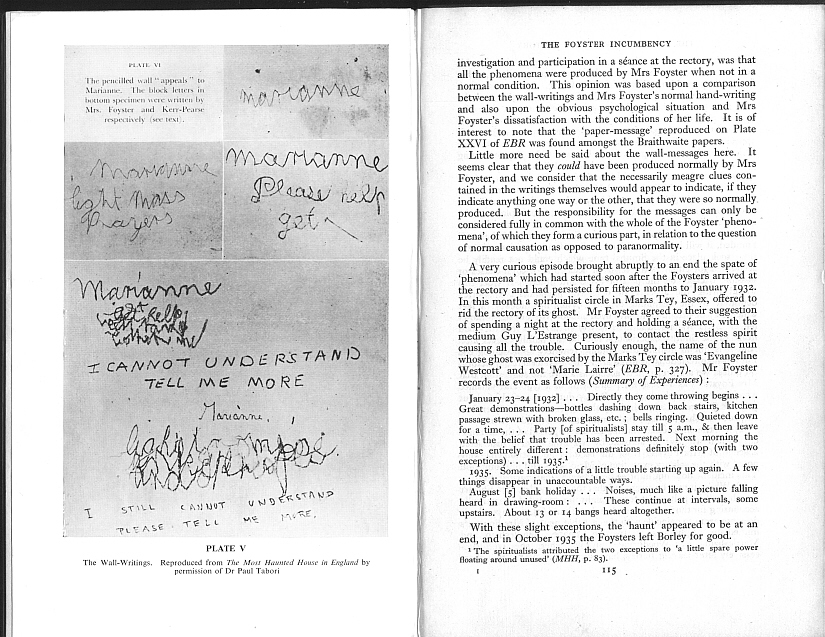 PLATE VI
The pencilled wall "appeals" to
Marianne. The block letters in
bottom specimen were written by
Mrs. Foyster and Kerr-Pearse
respectively (see text).
marianne
Marianne
light mass
Prayers
Marianne
Please help
get
Marianne
get help
I CANNOT UNDERSTAND
TELL ME MORE
Marianne.
I STILL CANNOT UNDERSTAND
PLEASE TELL ME MORE.
PLATE V
The Wall-Writings. Reproduced from The Most Haunted House in England by
permission of Dr Paul Tabori
THE FOYSTER INCUMBENCY
investigation and participation in a séance at the rectory, was that
all the phenomena were produced by Mrs Foyster when not in a
normal condition. This opinion was based upon a comparison
between the wall-writings and Mrs Foyster's normal hand-writing
and also upon the obvious psychological situation and Mrs
Foyster's dissatisfaction with the conditions of her life. It is of
interest to note that the 'paper-message' reproduced on Plate
XXVI of EBR was found amongst the Braithwaite papers.
Little more need be said about the wall-messages here. It
seems clear that they could have been produced normally by Mrs
Foyster, and we consider that the necessarily meagre clues con-
tained in the writings themselves would appear to indicate, if they
indicate anything one way or the other, that they were so normally
produced. But the responsibility for the messages can only be
considered fully in common with the whole of the Foyster 'pheno-
mena', of which they form a curious part, in relation to the question
of normal causation as opposed to paranormality.
A very curious episode brought abruptly to an end the spate of
'phenomena' which had started soon after the Foysters arrived at
the rectory and had persisted for fifteen months to January 1932.
In this month a spiritualist circle in Marks Tey, Essex, offered to
rid the rectory of its ghost. Mr Foyster agreed to their suggestion
of spending a night at the rectory and holding a séance, with the
medium Guy L'Estrange present, to contact the restless spirit
causing all the trouble. Curiously enough, the name of the nun
whose ghost was exorcised by the Marks Tey circle was 'Evangeline
Westcott' and not 'Marie Lairre' (EBR, p. 327). Mr Foyster
records the event as follows (Summary of Experiences) :
January 23–24 [1932] . . . Directly they come throwing begins . . .
Great demonstrations—bottles dashing down back stairs, kitchen
passage strewn with broken glass, etc. ; bells ringing. Quieted down
for a time, . . . Party [of spiritualists] stay till 5 a.m., & then leave
with the belief that trouble has been arrested. Next morning the
house entirely different : demonstrations definitely stop (with two
exceptions) . . . till 1935.¹
1935. Some indications of a little trouble starting up again. A few
things disappear in unaccountable ways.
August [5] bank holiday . . . Noises, much like a picture falling
heard in drawing-room : . . . These continue at intervals, some
upstairs. About 13 or 14 bangs heard altogether.
With these slight exceptions, the 'haunt' appeared to be at an
end, and in October 1935 the Foysters left Borley for good.
¹ 'The spiritualists attributed the two exceptions to 'a little spare power
floating around unused' (MHH, p. 83).
I 115